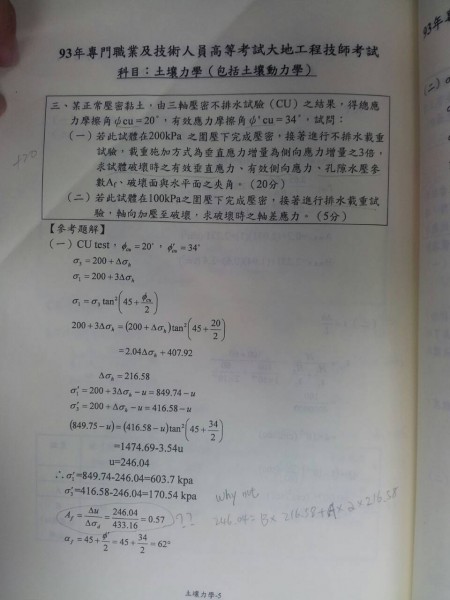 93年專門職業及技術人員高等考試大地工程技師考試
科目：土壤力學（包括土壤動力學）
三、某正常壓密黏土，由三軸壓密不排水試驗（CU）之結果，得總應
力摩擦角ϕcu=20°，有效應力摩擦角ϕ'cu=34°，試問：
（一）若此試體在200kPa 之圍壓下完成壓密，接著進行不排水載重
試驗，載重施加方式為垂直應力增量為側向應力增量之3倍，
求試體破壞時之有效垂直應力、有效側向應力、孔隙水壓參
數Af、破壞面與水平面之夾角。（20分）
（二）若此試體在100kPa之圍壓下完成壓密，接著進行排水載重試
驗，軸向加壓至破壞，求破壞時之軸差應力。（5分）
【參考題解】
（一）CU test，ϕcu=20°，ϕ'cu=34°
σ3=200+Δσh
σ1=200+3Δσh
σ1=σ3tan²(45+ϕcu/2)
200+3Δσh=(200+Δσh)tan²(45+20/2)
=2.04Δσh+407.92
Δσh=216.58
σ1'=200+3Δσh−u=849.74−u
σ3'=200+Δσh−u=416.58−u
(849.75−u)=(416.58−u)tan²(45+34/2)
=1474.69-3.54u
u=246.04
∴σ1'=849.74-246.04=603.7 kpa
σ3'=416.58-246.04=170.54 kpa
why not
Af=Δu/Δσd=246.04/433.16=0.57 ??
246.04=B×216.58+A×2×216.58
αf=45+ϕ'/2=45+34/2=62°
土壤力學-5